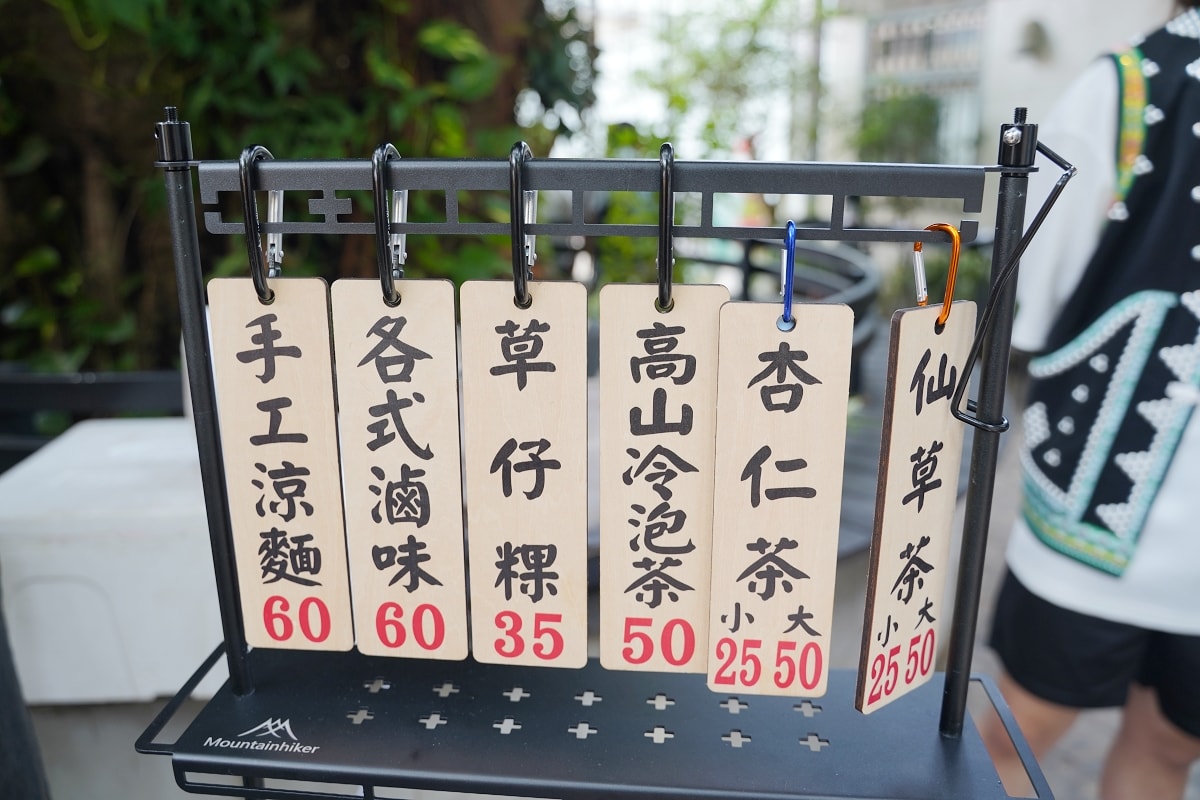 手工涼麵
60
各式滷味
60
草仔粿
35
高山冷泡茶
50
杏仁茶
小 大
25 50
仙草茶
小 大
25 50
Mountainhiker